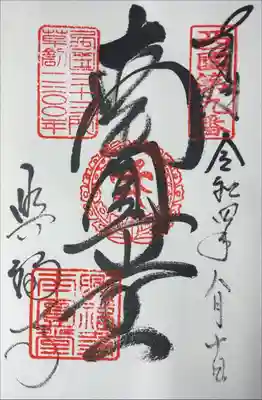 奉拝
令和四年八月十日
西国第九番
南圓堂
西国三十三所
草創一三〇〇年
興福寺
興福寺
南圓堂